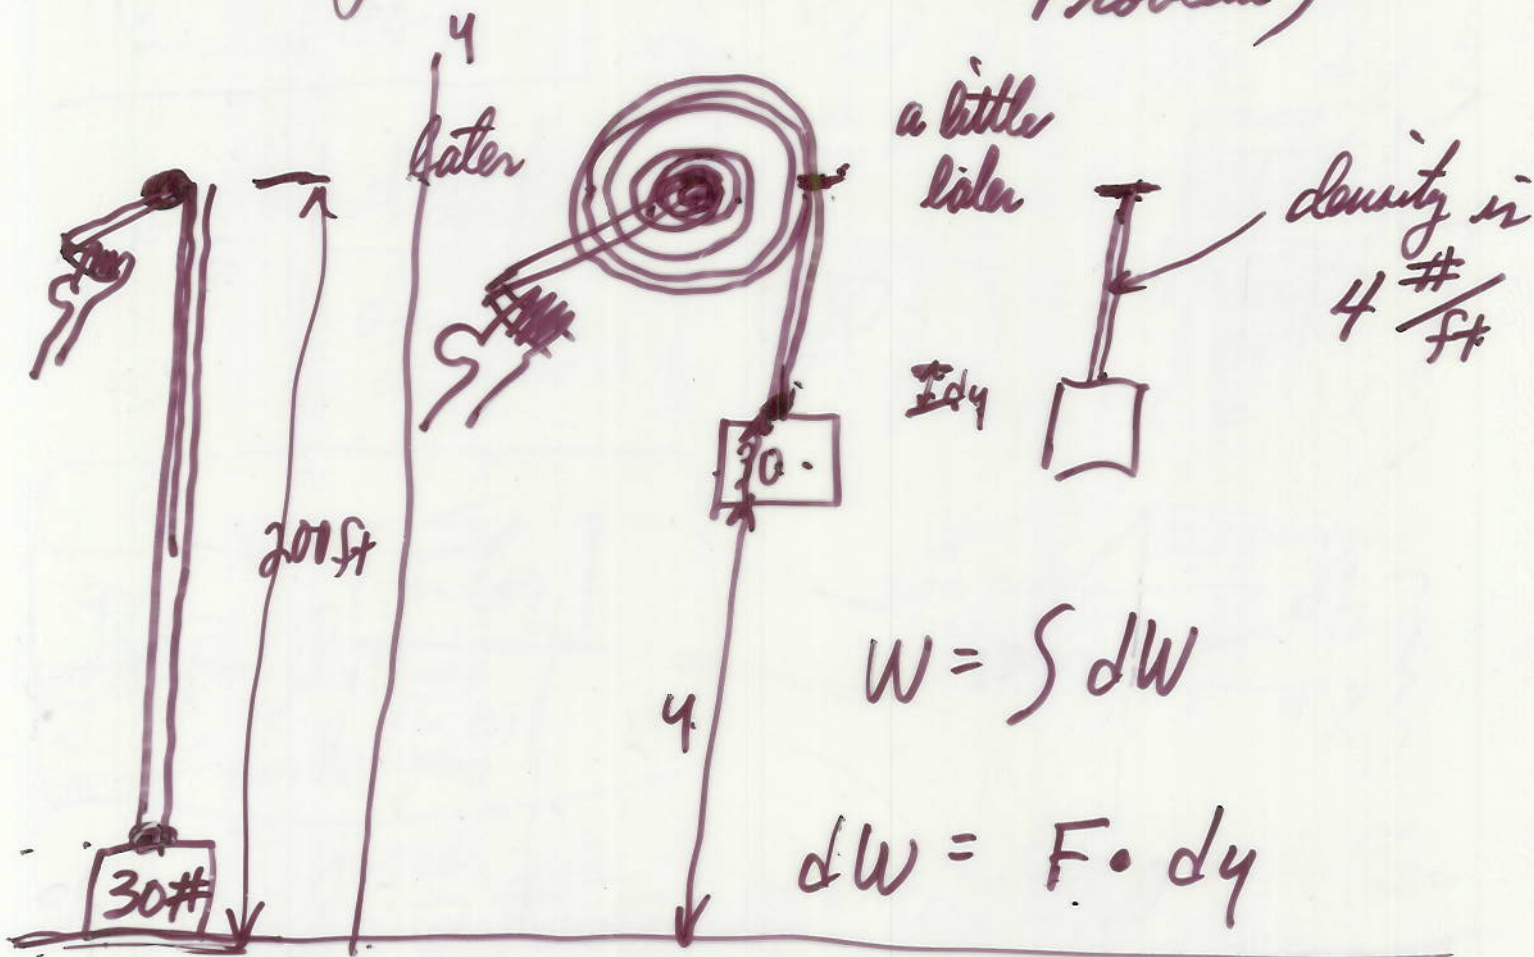 Problem)
y
later
a little
later
density is
4 #/ft
dy
30
200 ft
y
W = ∫ dW
dW = F • dy
30#